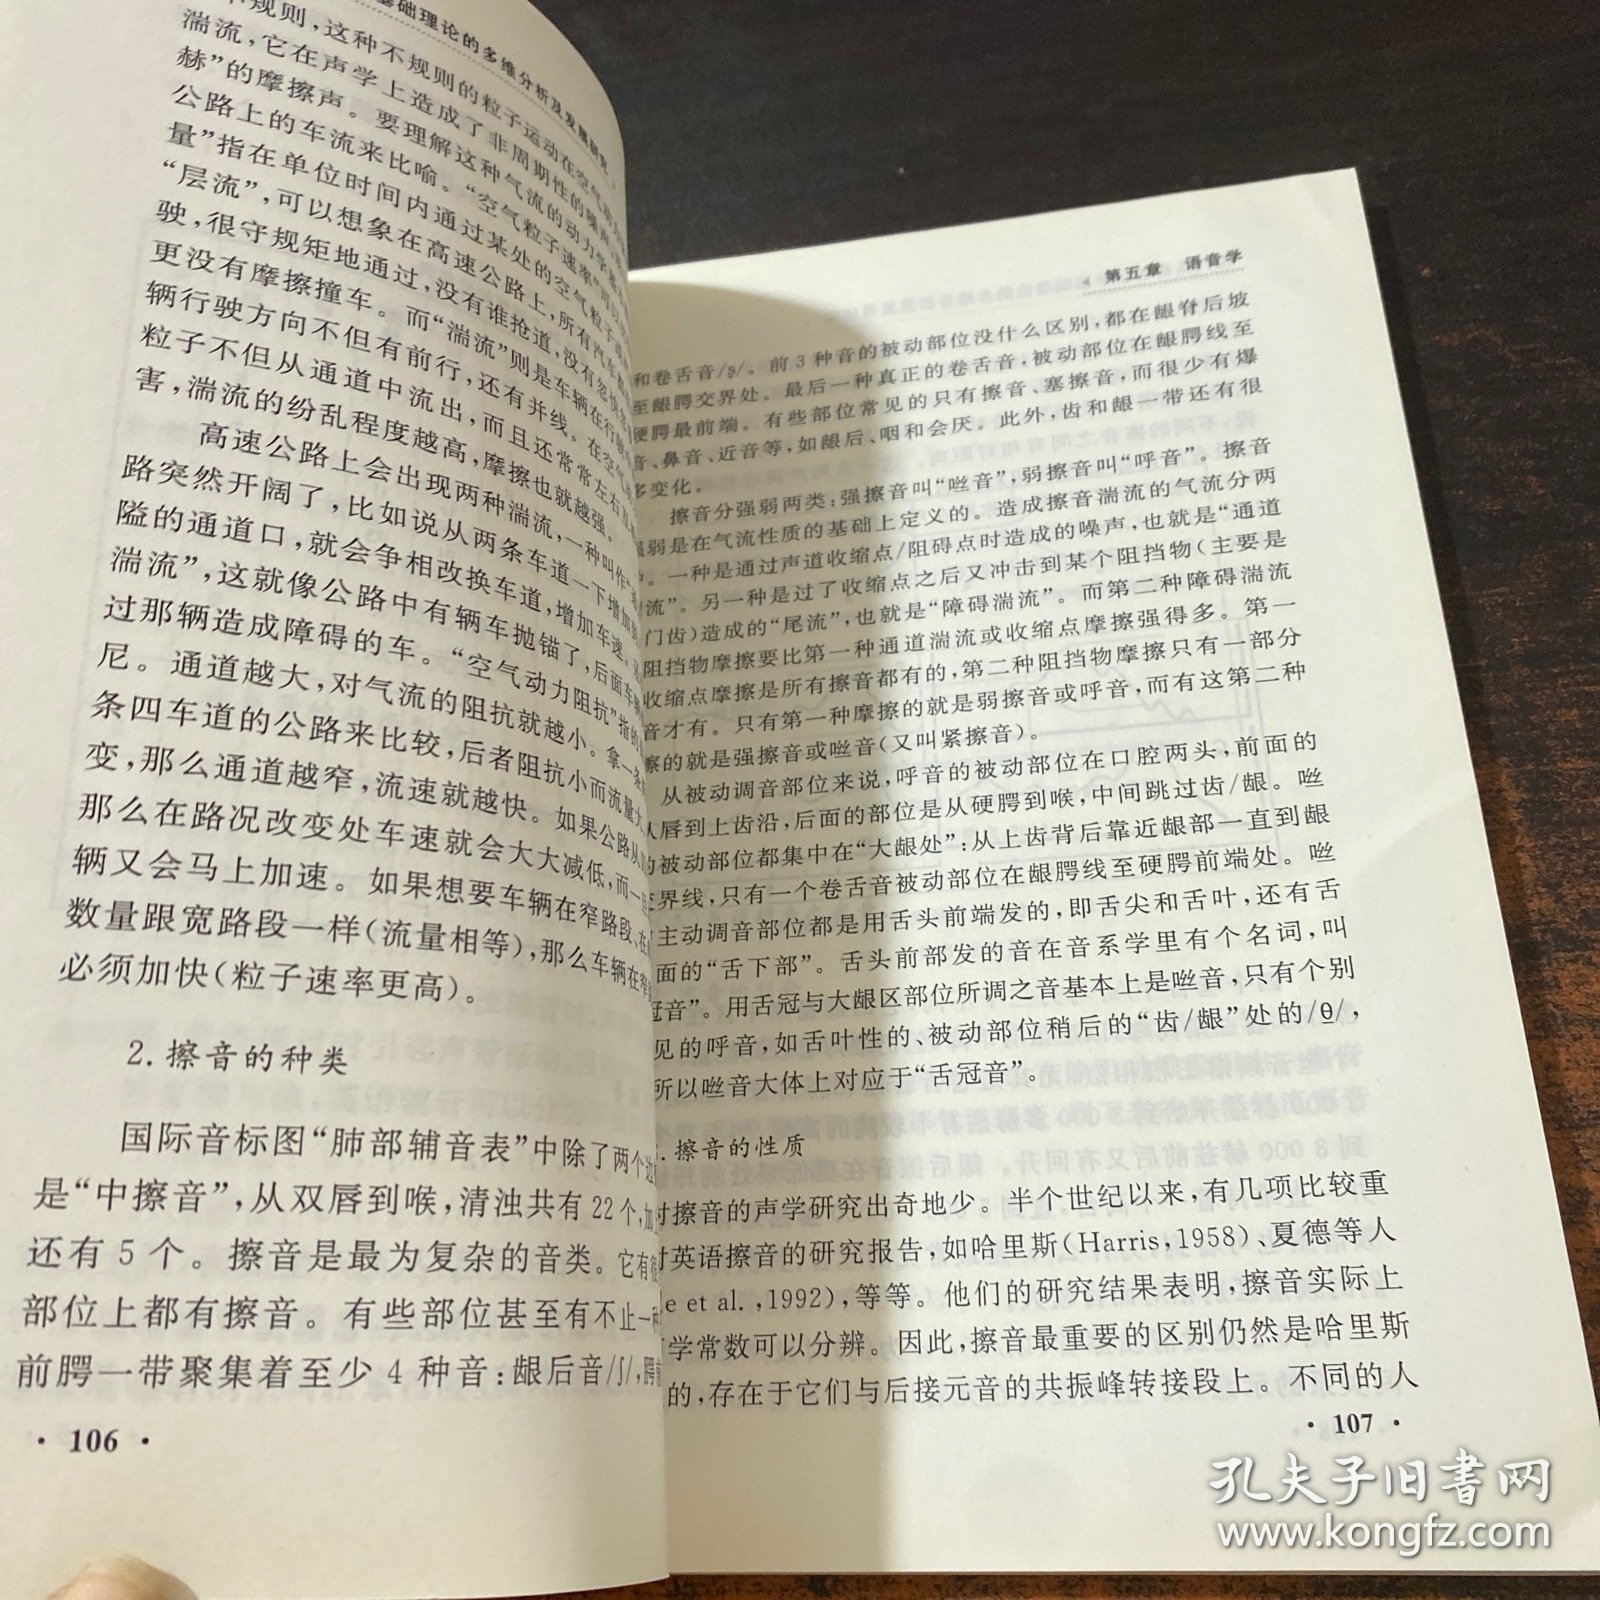 基础理论的多维分析及发展研究
规则，这种不规则的粒子运动在空气动力
湍流，它在声学上造成了非周期性的噪声
赫”的摩擦声。要理解这种气流的动力学
公路上的车流来比喻。“空气粒子速率”
量”指在单位时间内通过某处的空气粒子
“层流”，可以想象在高速公路上，所有汽车
驶，很守规矩地通过，没有谁抢道，没有
更没有摩擦撞车。而“湍流”则是车辆在行驶
辆行驶方向不但有前行，还有并线。在空气
粒子不但从通道中流出，而且还常常左右
害，湍流的纷乱程度越高，摩擦也就越强。
高速公路上会出现两种湍流，一种叫作“
路突然开阔了，比如说从两条车道一下增加
隘的通道口，就会争相改换车道，增加车速。
湍流”，这就像公路中有辆车抛锚了，后面车辆
过那辆造成障碍的车。“空气动力阻抗”指的
尼。通道越大，对气流的阻抗就越小。拿一条
条四车道的公路来比较，后者阻抗小而流量大
变，那么通道越窄，流速就越快。如果公路从
那么在路况改变处车速就会大大减低，而一旦
辆又会马上加速。如果想要车辆在窄路段、在
数量跟宽路段一样（流量相等），那么车辆在窄
必须加快（粒子速率更高）。
2. 擦音的种类
国际音标图“肺部辅音表”中除了两个边
是“中擦音”，从双唇到喉，清浊共有 22 个，加
还有 5 个。擦音是最为复杂的音类。它有很
部位上都有擦音。有些部位甚至有不止一种
前腭一带聚集着至少 4 种音：龈后音/ʃ/，腭前
· 106 ·
第五章 语音学
和卷舌音/ʂ/。前 3 种音的被动部位没什么区别，都在龈脊后坡
至龈腭交界处。最后一种真正的卷舌音，被动部位在龈腭线至
硬腭最前端。有些部位常见的只有擦音、塞擦音，而很少有爆
音、鼻音、近音等，如龈后、咽和会厌。此外，齿和龈一带还有很
多变化。
擦音分强弱两类：强擦音叫“咝音”，弱擦音叫“呼音”。擦音
强弱是在气流性质的基础上定义的。造成擦音湍流的气流分两
。一种是通过声道收缩点/阻碍点时造成的噪声，也就是“通道
流”。另一种是过了收缩点之后又冲击到某个阻挡物（主要是
门齿）造成的“尾流”，也就是“障碍湍流”。而第二种障碍湍流
阻挡物摩擦要比第一种通道湍流或收缩点摩擦强得多。第一
收缩点摩擦是所有擦音都有的，第二种阻挡物摩擦只有一部分
音才有。只有第一种摩擦的就是弱擦音或呼音，而有这第二种
擦的就是强擦音或咝音（又叫紧擦音）。
从被动调音部位来说，呼音的被动部位在口腔两头，前面的
从唇到上齿沿，后面的部位是从硬腭到喉，中间跳过齿/龈。咝
的被动部位都集中在“大龈处”：从上齿背后靠近龈部一直到龈
交界线，只有一个卷舌音被动部位在龈腭线至硬腭前端处。咝
主动调音部位都是用舌头前端发的，即舌尖和舌叶，还有舌
面的“舌下部”。舌头前部发的音在音系学里有个名词，叫
冠音”。用舌冠与大龈区部位所调之音基本上是咝音，只有个别
见的呼音，如舌叶性的、被动部位稍后的“齿/龈”处的/θ̠/，
所以咝音大体上对应于“舌冠音”。
. 擦音的性质
对擦音的声学研究出奇地少。半个世纪以来，有几项比较重
对英语擦音的研究报告，如哈里斯（Harris，1958）、夏德等人
e et al. ，1992），等等。他们的研究结果表明，擦音实际上
学常数可以分辨。因此，擦音最重要的区别仍然是哈里斯
的，存在于它们与后接元音的共振峰转接段上。不同的人
· 107 ·
孔夫子旧书网
www.kongfz.com